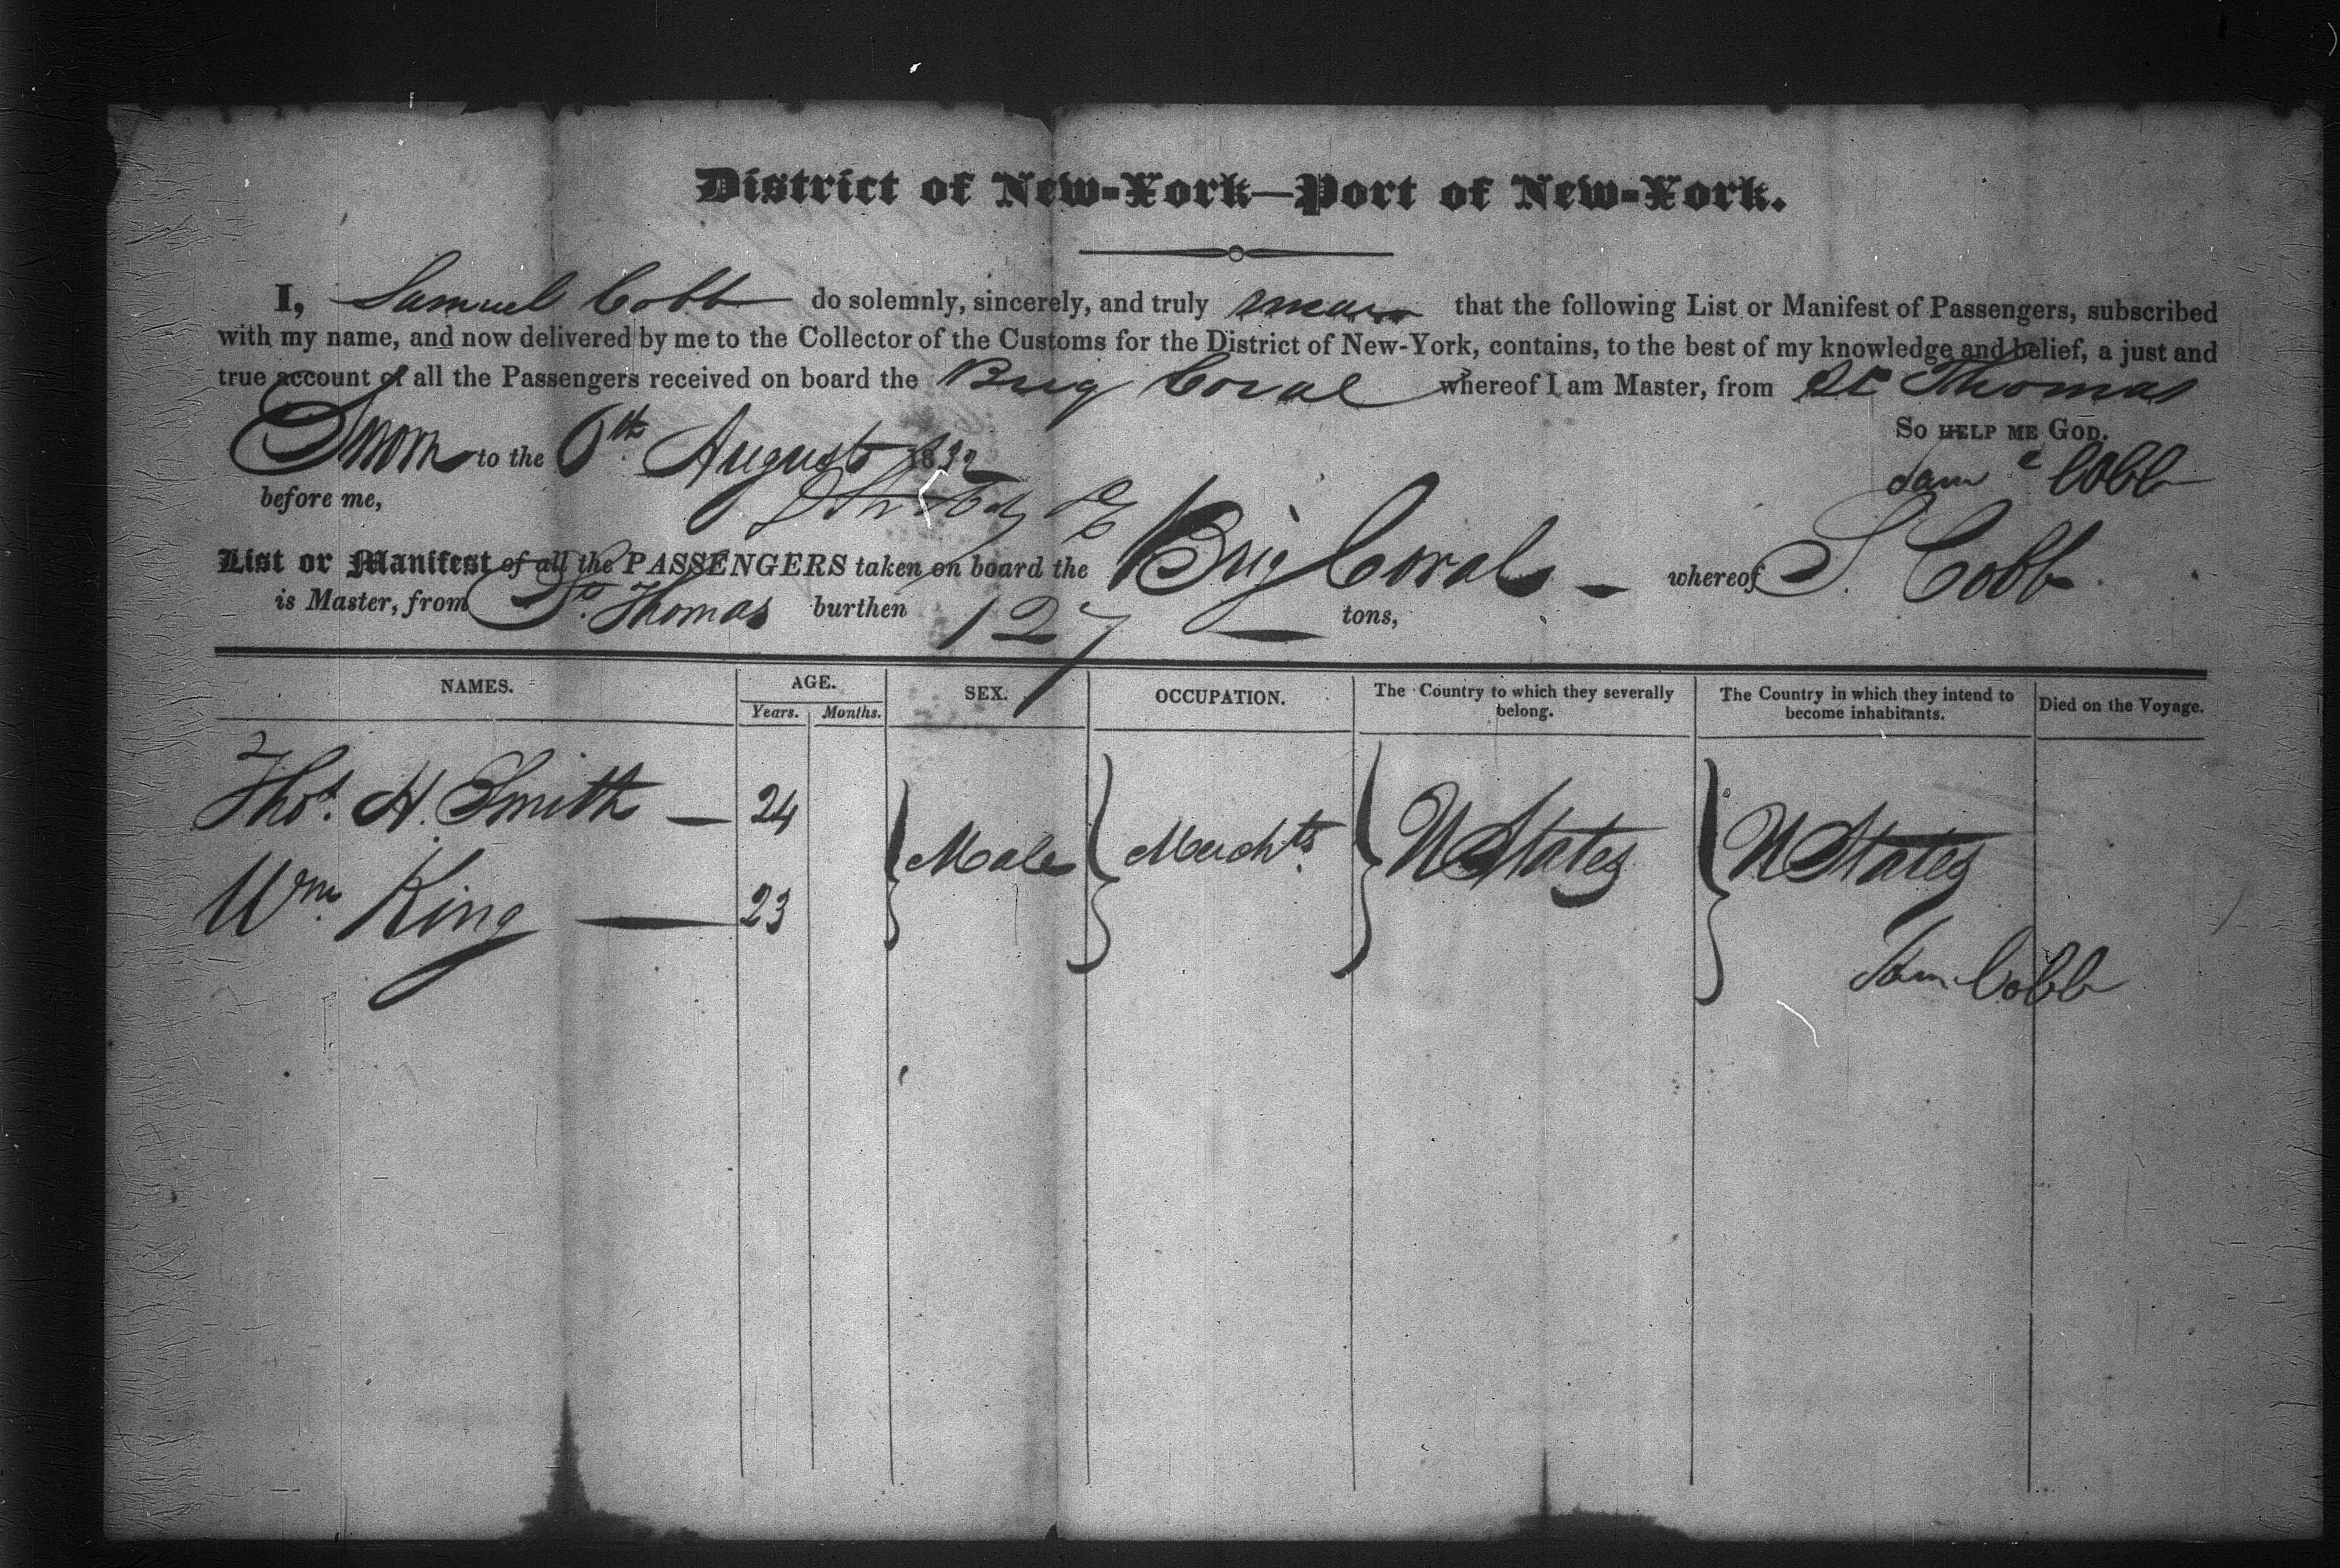 District of New-York—Port of New-York.
I, Samuel Cobb do solemnly, sincerely, and truly swear that the following List or Manifest of Passengers, subscribed
with my name, and now delivered by me to the Collector of the Customs for the District of New-York, contains, to the best of my knowledge and belief, a just and
true account of all the Passengers received on board the Brig Coral whereof I am Master, from St Thomas
So HELP ME GOD.
Sworn to the 6th August 1832
Saml Cobb
before me,
List or Manifest of all the PASSENGERS taken on board the Brig Coral — whereof S. Cobb
is Master, from St. Thomas burthen 127 — tons,
NAMES. AGE. SEX. OCCUPATION. The Country to which they severally belong. The Country in which they intend to become inhabitants. Died on the Voyage.
Years. Months.
2
Thos. H. Smith — 24
Male Merchts. UStates UStates
Wm. King — 23
Sam Cobb